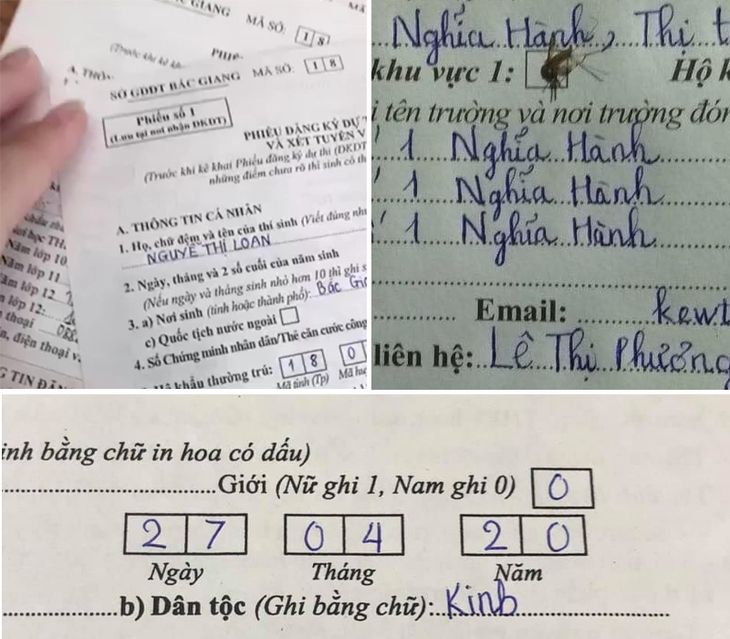 GIANG
MÃ SỐ:
1 8
(Trước khi kê kh
SỞ GDĐT BẮC GIANG MÃ SỐ: 1 8
Phiếu số 1
(Lưu tại nơi nhận ĐKDT)
PHIẾU ĐĂNG KÝ DỰ
VÀ XÉT TUYỂN V
(Trước khi kê khai Phiếu đăng ký dự thi (ĐKDT
những điểm chưa rõ thí sinh có th
A. THÔNG TIN CÁ NHÂN
1. Họ, chữ đệm và tên của thí sinh (Viết đúng nh
NGUYỄ THỊ LOAN
2. Ngày, tháng và 2 số cuối của năm sinh
(Nếu ngày và tháng sinh nhỏ hơn 10 thì ghi s
3. a) Nơi sinh (tỉnh hoặc thành phố): Bắc Gi
c) Quốc tịch nước ngoài
4. Số Chứng minh nhân dân/Thẻ căn cước công
khẩu thường trú: 1 8 0
Mã tỉnh (Tp) Mã hu
Năm lớp 10
Năm lớp 11
lớp 12
lớp 12:
thoại
điện thoại v
G TIN Đ
Nghĩa Hành, Thị t
khu vực 1: Hộ k
i tên trường và nơi trường đón
1 Nghĩa Hành
1 Nghĩa Hành
1 Nghĩa Hành
Email: kewt
liên hệ: Lê Thị Phương
inh bằng chữ in hoa có dấu)
Giới (Nữ ghi 1, Nam ghi 0) 0
2 7 0 4 2 0
Ngày Tháng Năm
b) Dân tộc (Ghi bằng chữ): Kinh